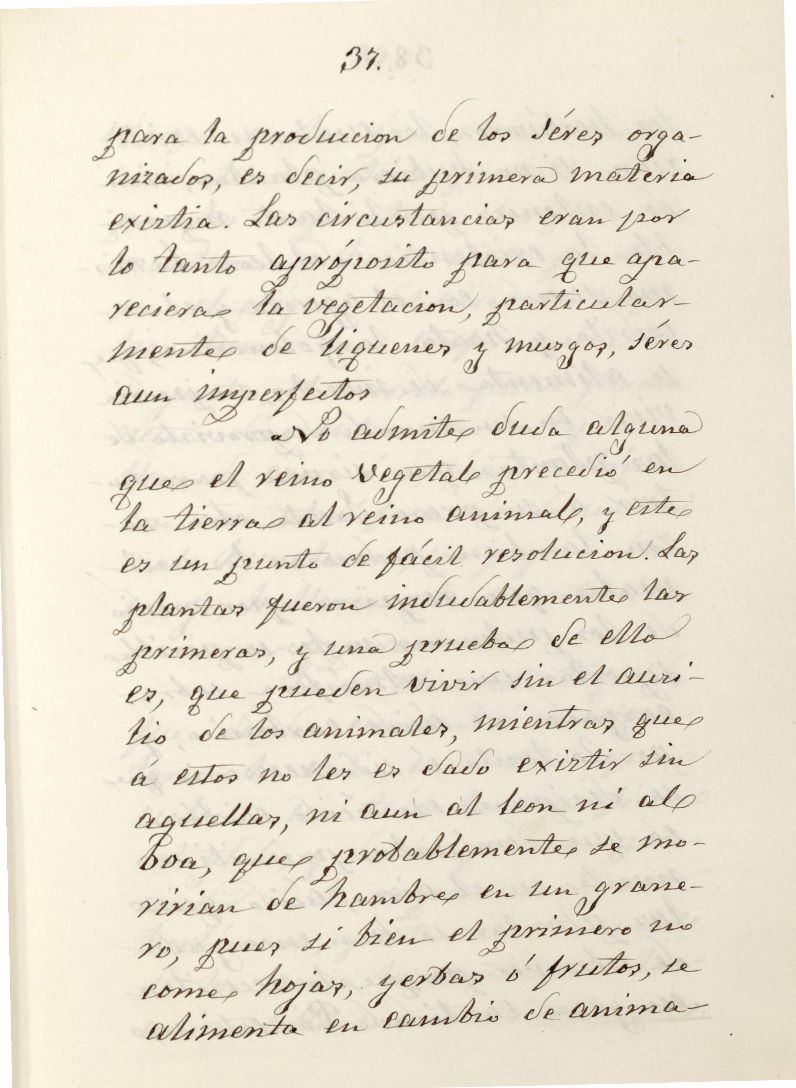 37.
para la produccion de los séres orga-
nizados, es decir, su primera materia
existia. Las circustancias eran por
lo tanto apróposito para que apa-
reciera la vegetacion, particular-
mente de liquenes y musgos, séres
aun imperfectos
No admite duda alguna
que el reino vegetal precedió en
la tierra al reino animal, y este
es un punto de fácil resolucion. Las
plantas fueron indudablemente las
primeras, y una prueba de ello
es, que pueden vivir sin el auxi-
lio de los animales, mientras que
á estos no les es dado existir sin
aquellas, ni aun al leon ni al
boa, que probablemente se mo-
ririan de hambre en un grane-
ro, pues si bien el primero no
come hojas, yerbas ó frutos, se
alimenta en cambio de anima-